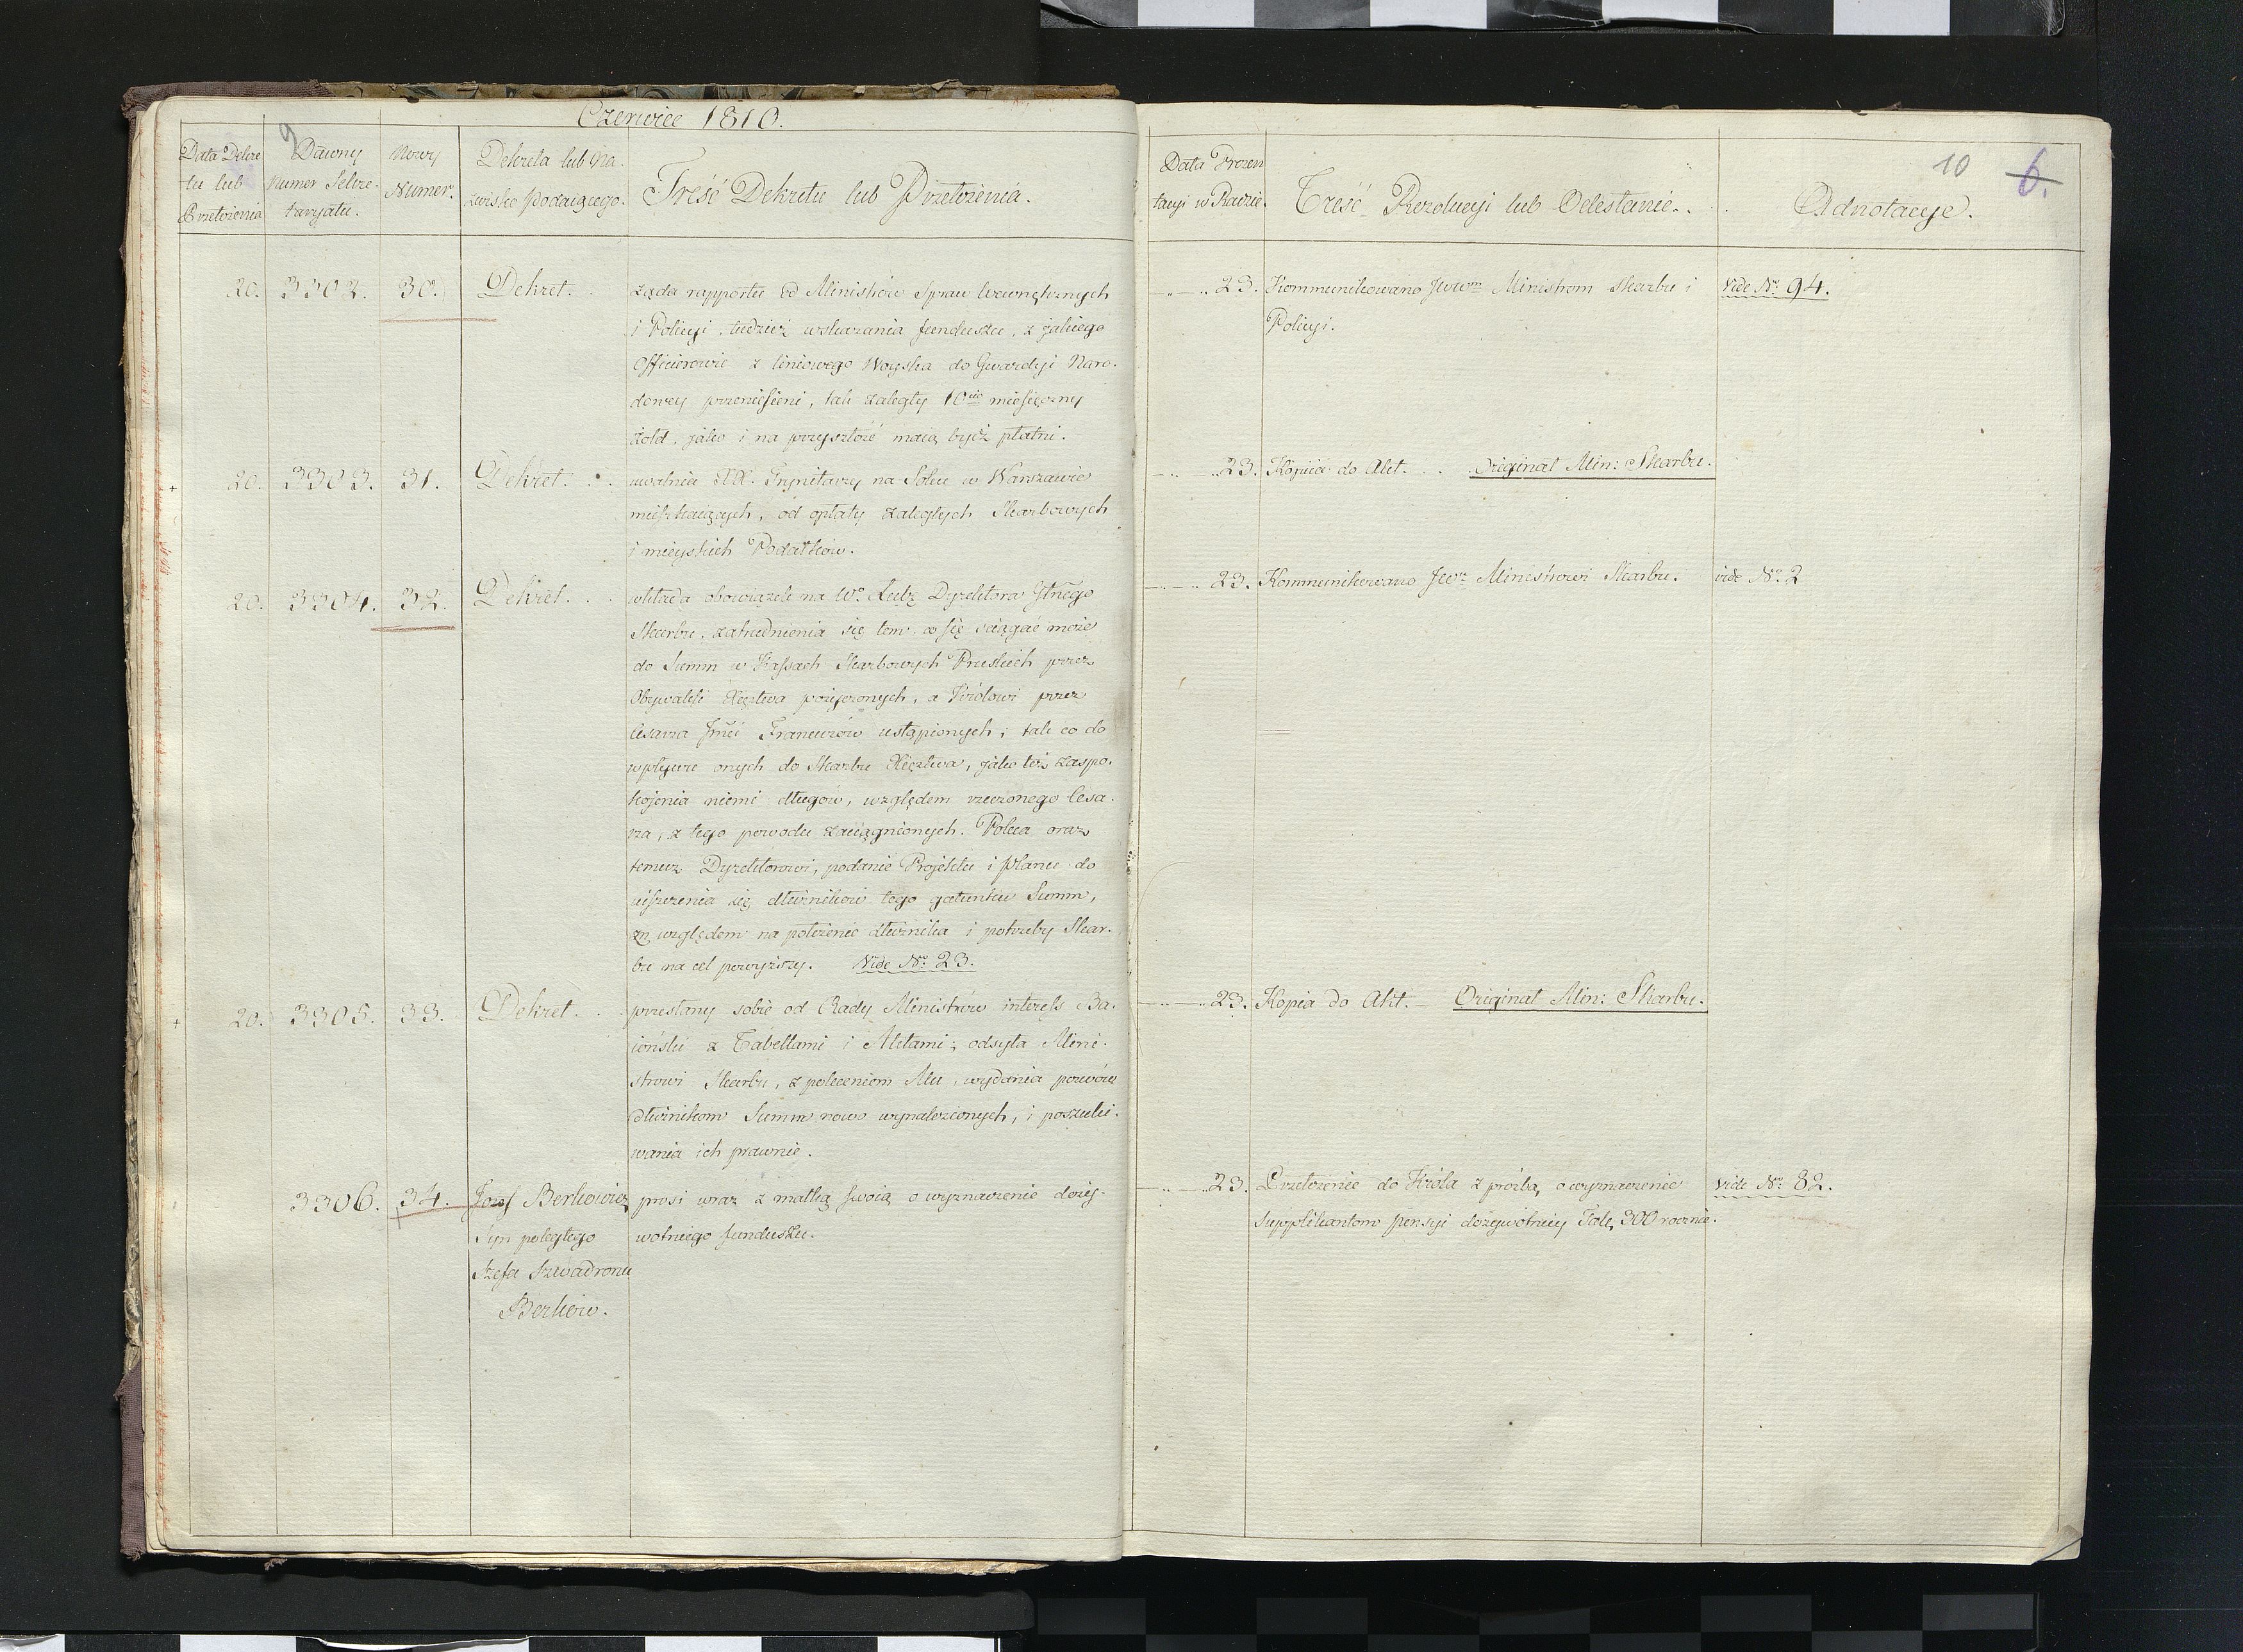 Czerwiec 1810.
9
Data Dekre
tu lub
Przełożenia
Dawny
Numer Sekre-
taryatu.
Nowy
Numer.
Dekreta lub Na-
zwisko Podaiącego.
Treść Dekretu lub Przełożenia.
20. 3302. 30. Dekret.
żąda rapportu od Ministrów Spraw Wewnętrznych
i Policyi, tudzież wskazania funduszu, z jakiego
Officierowie z liniowego Woyska do Gwardyi Naro-
dowey przeniesieni, tak zaległy 10cio miesięczny
żołd, jako i na przyszłość maią bydź płatni.
+ 20. 3303. 31. Dekret.
uwalnia XX. Trynitarzy na Solcu w Warszawie
mieszkaiących, od opłaty zaległych Skarbowych
i mieyskich Podatków.
20. 3304. 32. Dekret.
wkłada obowiązek na Wo. Dyrektora
Skarbu, zatrudnienia się tem, co się ściągać może
do Summ w Kassach Skarbowych Pruskich przez
Obywateli Xięztwa pożyczonych, a Królowi przez
Cesarza Jmci Francuzów ustąpionych; tak co do
wpływu onych do Skarbu Xięztwa, jako też zaspo-
kojenia niemi długów, względem rzeczonego Cesa-
rza, z tego powodu zaciągnionych. Poleca oraz
temuż Dyrektorowi, podanie Projektu i Planu do
uiszczenia się dłużników tego gatunku Summ,
ze względem na położenie dłużnika i potrzeby Skar-
bu na cel powyższy. Vide No. 23.
+ 20. 3305. 33. Dekret.
przesłany sobie od Rady Ministrów interes Ba-
joński z Tabellami i Aktami; odsyła Mini-
strowi Skarbu, z poleceniem Mu, wydania pozwów
dłużnikom Summ nowo wynalezionych, i poszuki-
wania ich prawnie.
3306. 34. Jozef Berkowicz
Syn poległego
Szefa Szwadronu
Berków.
prosi wraz z matką swoią o wyznaczenie doży-
wotniego funduszu.
10
6.
Data Prezen
tacyi w Radzie.
Treść Rezolucyi lub Odesłanie.
Adnotacye.
23. Kommunikowano JWWm Ministrom Skarbu i
Policyi.
Vide No. 94.
23. Kopia do Akt. Originał Min: Skarbu.
23. Kommunikowano JWu Ministrowi Skarbu.
vide No. 2
23. Kopia do Akt. Originał Min: Skarbu.
23. Przełożenie do Króla z prozbą o wyznaczenie
supplikantom pensyi dożywotniey Tal. 300 rocznie.
vide No. 82.